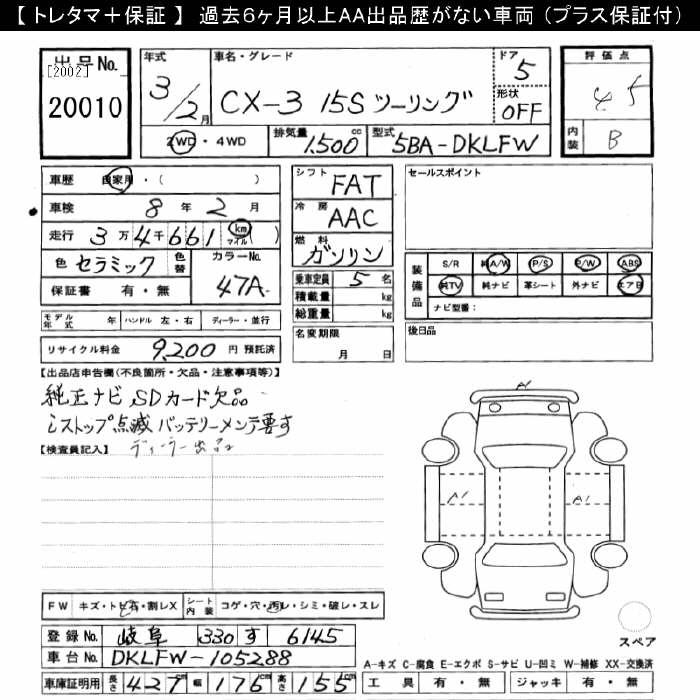 【トレタマ＋保証】 過去6ヶ月以上AA出品歴がない車両（プラス保証付）
出品No.
[2002]
20010
年式 3/2月
車名・グレード CX-3 15Sツーリング
ドア 5
形状 OFF
2WD・4WD
排気量 1,500 cc
型式 5BA-DKLFW
評価点 4.5
内装 B
車歴 自家用・( )
車検 8年 2月
走行 3万4千661 km マイル ( )
色 セラミック 色替
カラーNo. 47A
保証書 有・無
シフト FAT
冷房 AAC
燃料 ガソリン
乗車定員 5名
積載量 kg
総重量 kg
セールスポイント
装備品 S/R 純A/W P/S P/W ABS
純TV 純ナビ 革シート 外ナビ エアB
ナビ型番：
モデル年式 年 ハンドル 左・右 ディーラー・並行
名変期限 月 日
後日品
リサイクル料金 9,200 円 預託済
【出品店申告欄(不良箇所・欠品・注意事項等)】
純正ナビ SDカード欠品
iストップ点滅 バッテリーメンテ要す
【検査員記入】 ディーラー出品
A1
A1
A1
FW キズ・トビ石・割レX
シート内装 コゲ・穴・汚レ・シミ・破レ・スレ
登録No. 岐阜 330 す 6145
車台No. DKLFW-105288
車庫証明用 長さ 427 cm 幅 176 cm 高さ 155 cm
スペア
A-キズ C-腐食 E-エクボ S-サビ U-凹ミ W-補修 XX-交換済
工具 有・無 ジャッキ 有・無